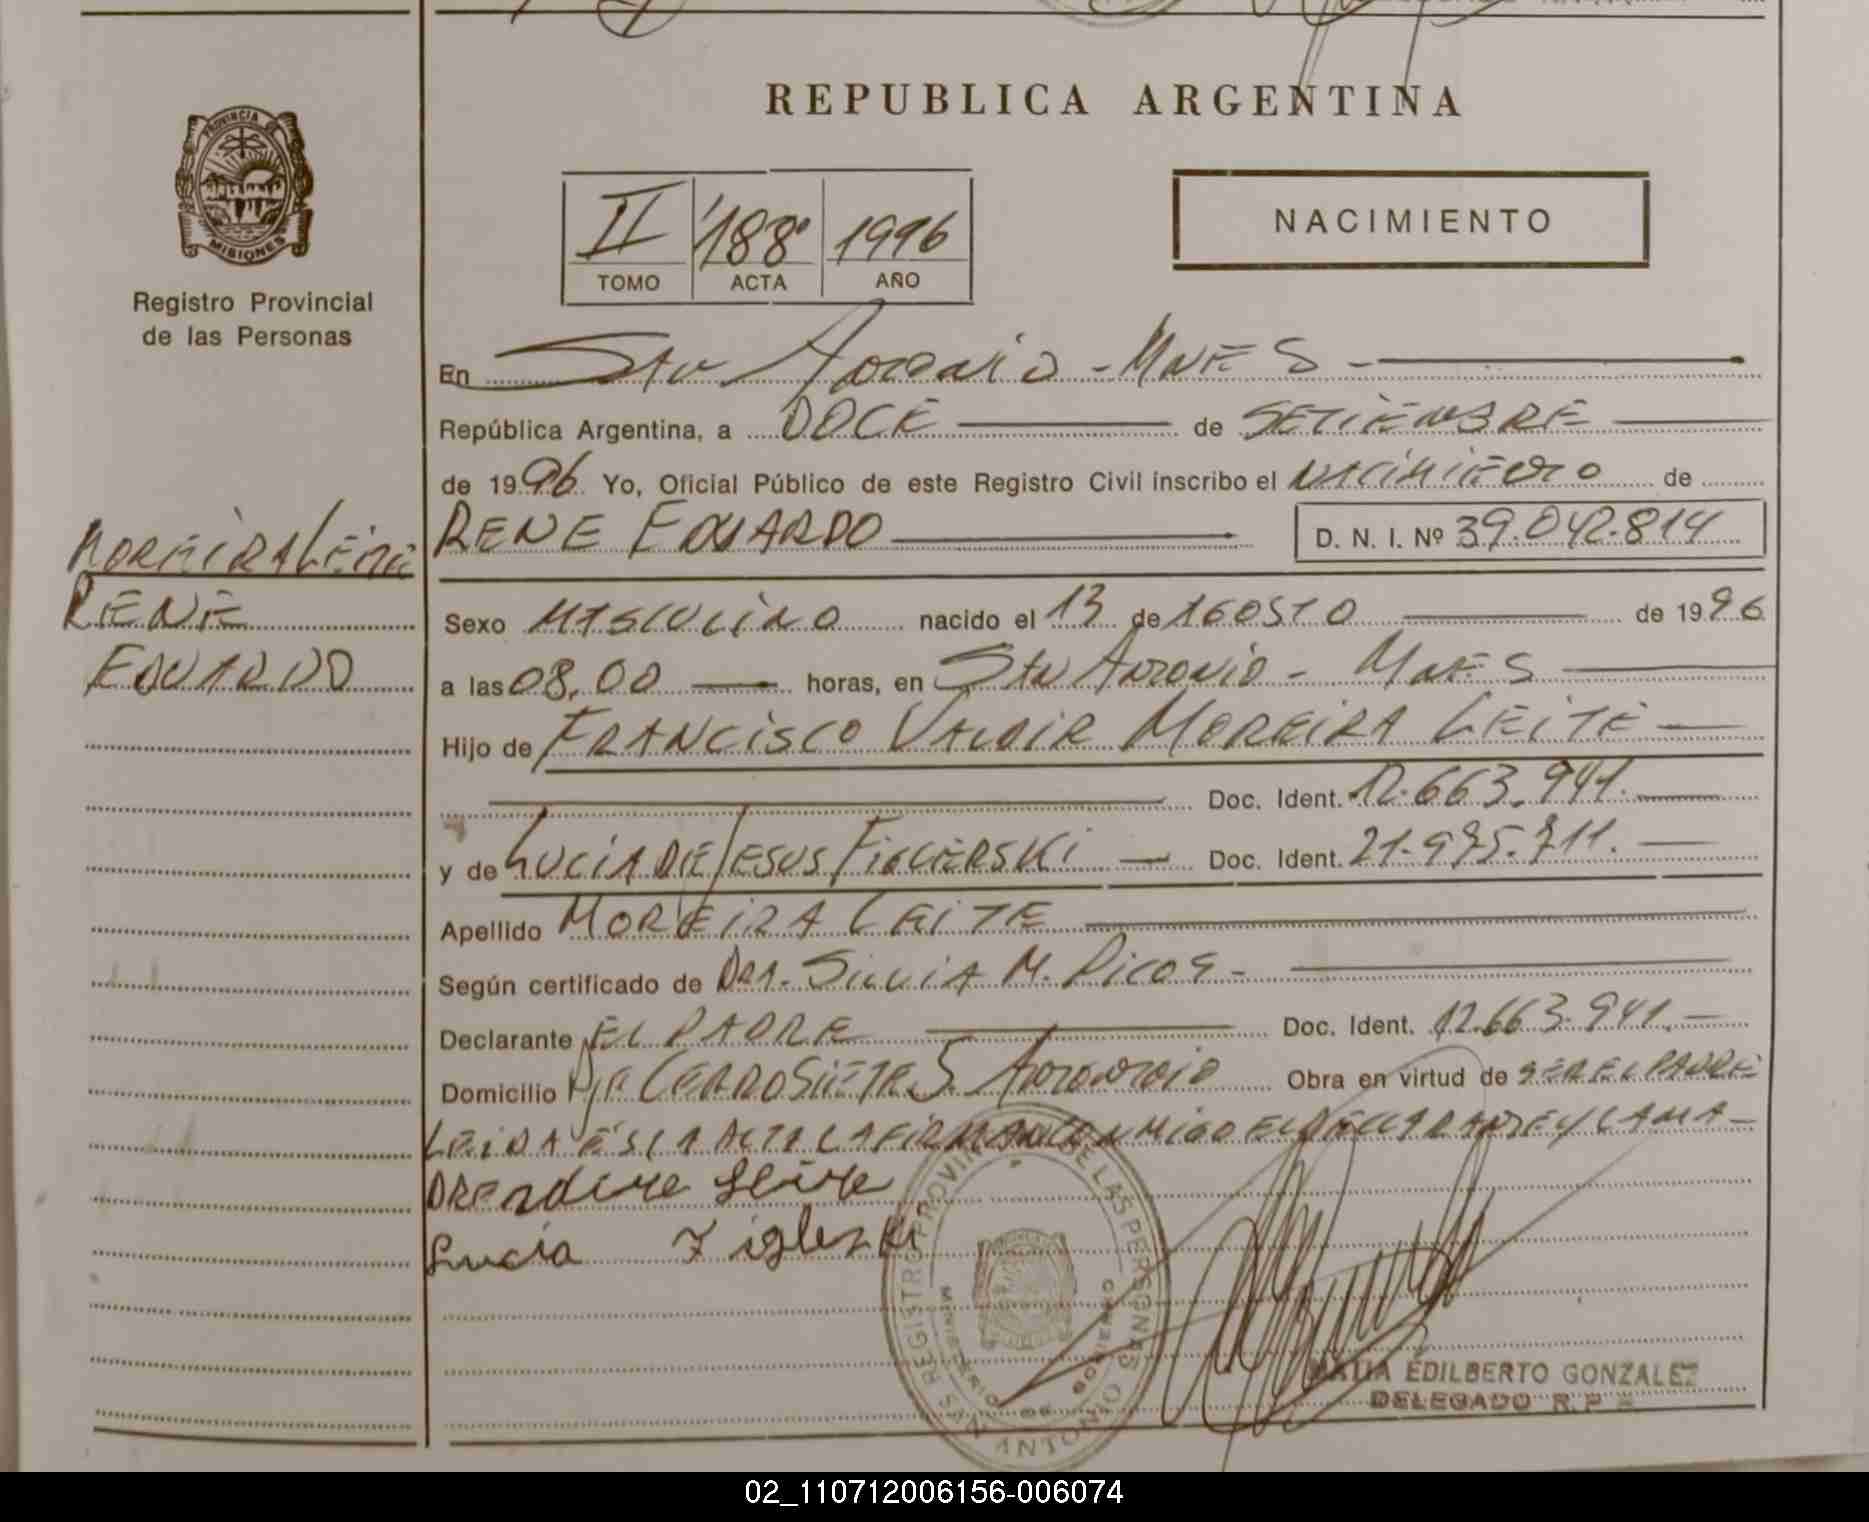 REPUBLICA ARGENTINA
PROVINCIA DE
MISIONES
Registro Provincial
de las Personas
II 188 1996
TOMO ACTA AÑO
NACIMIENTO
En Sto Antonio - Mnes -
República Argentina, a DOCE de SETIEMBRE
de 1996 Yo, Oficial Público de este Registro Civil inscribo el NACIMIENTO de
RENE EDUARDO D. N. I. Nº 39.042.814
MOREIRA LEITE
RENE
EDUARDO
Sexo MASCULINO nacido el 13 de AGOSTO de 1996
a las 08,00 horas, en Sto Antonio - Mnes
Hijo de FRANCISCO VALDIR MOREIRA LEITE
Doc. Ident. 12.663.941.
y de LUCIA DE JESUS FIGLERSKI Doc. Ident. 21.975.711.
Apellido MOREIRA LEITE
Según certificado de DRA. SILVIA M. PICOS -
Declarante EL PADRE Doc. Ident. 12.663.941.
Domicilio CERRO SIETE S. Antonio Obra en virtud de SER EL PADRE
LEIDA ESTA ACTA LA FIRMAN CONMIGO EL DECLARANTE Y LA MA-
DRE
Lucia Figlerski
REGISTRO PROVINCIAL DE LAS PERSONAS
MINISTERIO DE GOBIERNO
SAN ANTONIO
EDILBERTO GONZALEZ
DELEGADO R. P.
02_110712006156-006074